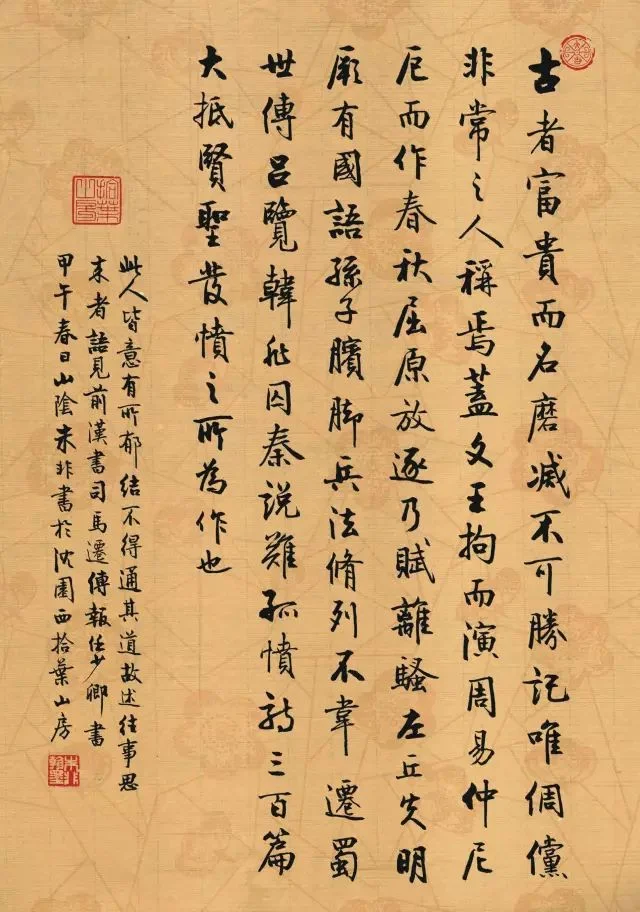 古者富貴而名磨滅不可勝記唯倜儻
非常之人稱焉蓋文王拘而演周易仲尼
厄而作春秋屈原放逐乃賦離騷左丘失明
厥有國語孫子臏脚兵法脩列不韋遷蜀
世傳呂覽韓非囚秦說難孤憤詩三百篇
大抵賢聖發憤之所為作也
此人皆意有所郁結不得通其道故述往事思
來者語見前漢書司馬遷傳報任少卿書
甲午春日山陰朱非書於沈園西拾葉山房
拾葉山房
朱非翰墨